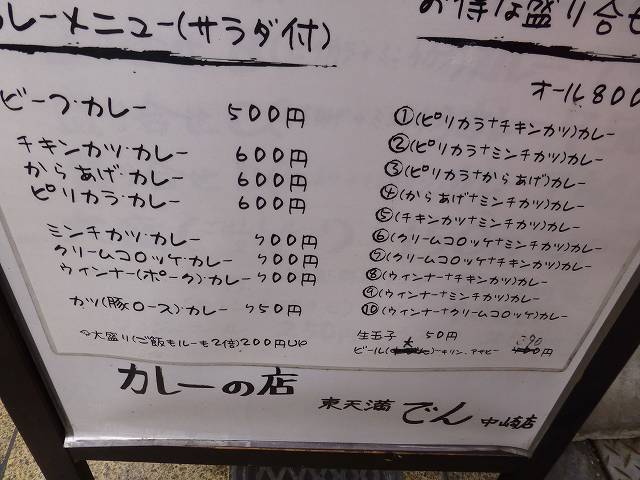 カレーメニュー(サラダ付)
ビーフ・カレー 500円
チキンカツ・カレー 600円
からあげ・カレー 600円
ピリカラ・カレー 600円
ミンチカツ・カレー 700円
クリームコロッケ・カレー 700円
ウィンナー(ポーク)・カレー 700円
カツ(豚ロース)・カレー 750円
大盛り(ご飯もルーも2倍)200円UP
お得な盛り合
オール800
①(ピリカラ+チキンカツ)カレー
②(ピリカラ+ミンチカツ)カレー
③(ピリカラ+からあげ)カレー
④(からあげ+ミンチカツ)カレー
⑤(チキンカツ+ミンチカツ)カレー
⑥(クリームコロッケ+ミンチカツ)カレー
⑦(クリームコロッケ+チキンカツ)カレー
⑧(ウィンナー+チキンカツ)カレー
⑨(ウィンナー+ミンチカツ)カレー
⑩(ウィンナー+クリームコロッケ)カレー
生玉子 50円
ビール( キリン、アサヒ 円
カレーの店
東天満 でん 中崎店